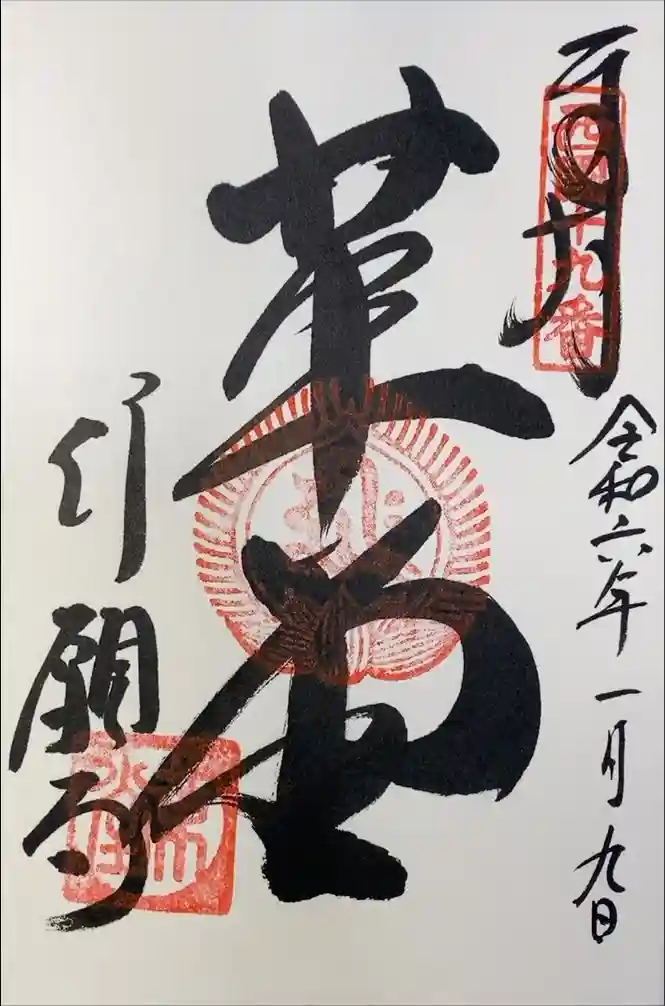 奉拝
西国十九番
令和六年一月九日
革堂
行願寺